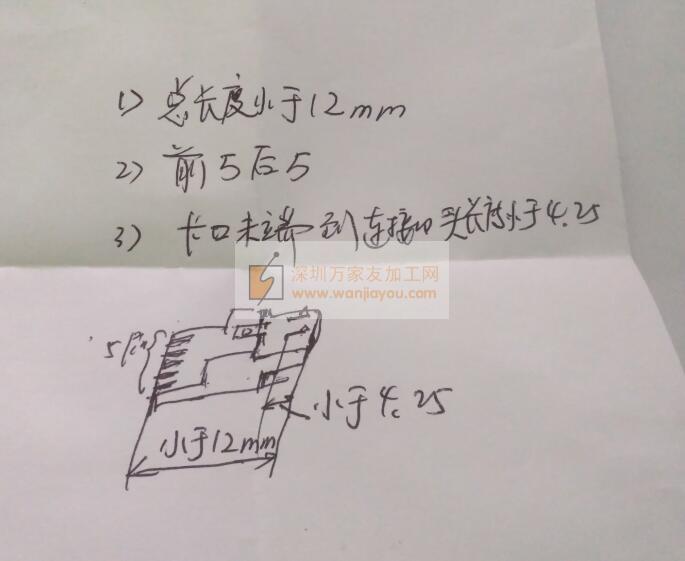 1) 总长度小于12mm
2) 前5后5
3) 卡口末端到连接口头长度小于4.25
深圳万家友加工网
www.wanjiayou.com
5Pin
小于4.25
小于12mm